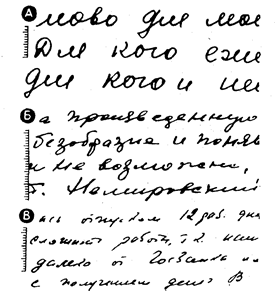 А
мово для мое
Для кого еже
для кого и ни
Б
а произведенную
безобразие и понят
и не возможен,
т. Немировский
В
ась отпуском 12 раб. дн
сложност работы, т.к. нам
далеко от Госбанка и
с получением денег В